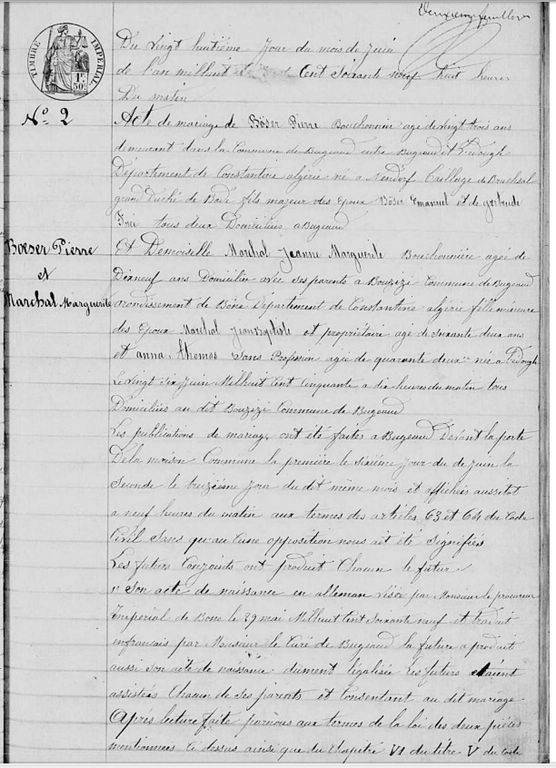 Deuxième feuillet
TIMBRE IMPERIAL
1F
50C
Du vingt huitième Jour du mois de Juin
de l'an mil huit Cent Soixante neuf huit heures
du matin
N° 2
Acte de mariage de Böser Pierre Bouchonnier agé de vingt trois ans
demeurant dans la Commune de Bugeaud entre Bugeaud et
Département de Constantine algérie né a Baillage de Bruchsal
grand Duché de Bade fils majeur des Epoux Böser Emanuel et de
tous deux Domiciliés a Bugeaud
Boeser Pierre
et
Marchal Marguerite
Et Demoiselle Marchal Jeanne Marguerite Bouchonnière agée de
Dixneuf ans Domiciliée avec ses parents a Bouzizi Commune de Bugeaud
arondissement de Bône Département de Constantine algérie fille mineure
des Epoux Marchal Jean Baptiste et propriétaire agé de Soixante deux ans
et anna Thomas Sans Profession agée de quarante deux née a
Le vingt Six Juin Mil huit Cent Cinquante a dix heures du matin tous
Domiciliés au dit Bouzizi Commune de Bugeaud
Les publications de mariage ont été faites a Bugeaud Devant la porte
De la maison Commune la première le Sixième Jour du de Juin la
Seconde le treizième Jour du dit même mois et affichés aussitot
a neuf heures du matin aux termes des articles 63 et 64 du Code
Civil Sans qu'au Cune opposition nous ait été Signifiés
Les futurs Conjoints ont produit Chacun le futur
1° Son acte de naissance en alleman visée par Monsieur le procureur
Imperial de Bone le 29 mai Mil huit Cent Soixante neuf et traduit
en français par Monsieur le Curé de Bugeaud la future a produit
aussi son acte de naissance dûment légalisée les futurs étaient
assistés Chacun de Ses parents et Consentant au dit mariage
Après lecture faite par nous aux termes de la loi des deux pièces
mentionnées Ci dessus ainsi que du Chapitre VI du titre V du Code